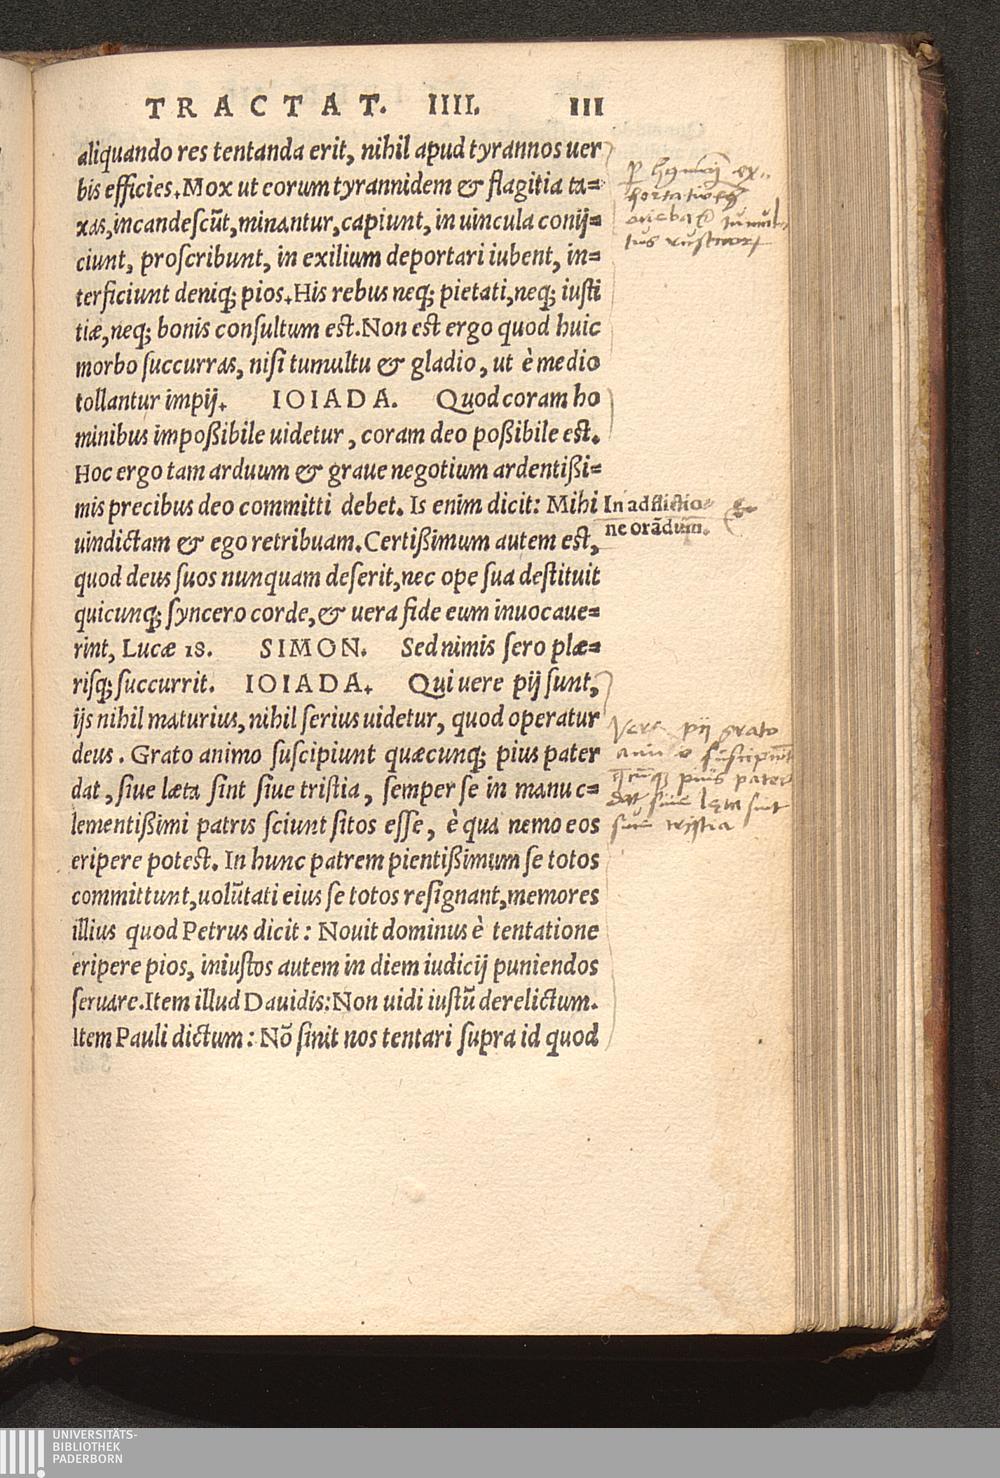 TRACTAT. IIII. III
aliquando res tentanda erit, nihil apud tyrannos uer
bis efficies. Mox ut eorum tyrannidem & flagitia ta=
xas, incandeſcūt, minantur, capiunt, in uincula conij=
ciunt, proſcribunt, in exilium deportari iubent, in=
terficiunt deniq; pios. His rebus neq; pietati, neq; iuſti
tiæ, neq; bonis conſultum eſt. Non eſt ergo quod huic
morbo ſuccurras, niſi tumultu & gladio, ut è medio
tollantur impij. IOIADA. Quod coram ho
minibus impoßibile uidetur, coram deo poßibile eſt.
Hoc ergo tam arduum & graue negotium ardentißi=
mis precibus deo committi debet. Is enim dicit: Mihi
uindictam & ego retribuam. Certißimum autem eſt,
quod deus ſuos nunquam deſerit, nec ope ſua deſtituit
quicunq; ſyncero corde, & uera fide eum inuocaue=
rint, Lucæ 18. SIMON. Sed nimis ſero plæ=
risq; ſuccurrit. IOIADA. Qui uere pij ſunt,
ijs nihil maturius, nihil ſerius uidetur, quod operatur
deus. Grato animo ſuſcipiunt quæcunq; pius pater
dat, ſiue læta ſint ſiue triſtia, ſemper ſe in manu c=
lementißimi patris ſciunt ſitos eſſe, è qua nemo eos
eripere poteſt. In hunc patrem pientißimum ſe totos
committunt, uolūtati eius ſe totos reſignant, memores
illius quod Petrus dicit: Nouit dominus è tentatione
eripere pios, iniuſtos autem in diem iudicij puniendos
ſeruare. Item illud Dauidis: Non uidi iuſtū derelictum.
Item Pauli dictum: Nō ſinit nos tentari ſupra id quod
In adflictio=
ne orādum.
Vere pij grato
animo ſuſcipiūt
pius pater
dat, ſiue lęta ſint
ſiue triſtia
UNIVERSITÄTS-
BIBLIOTHEK
PADERBORN